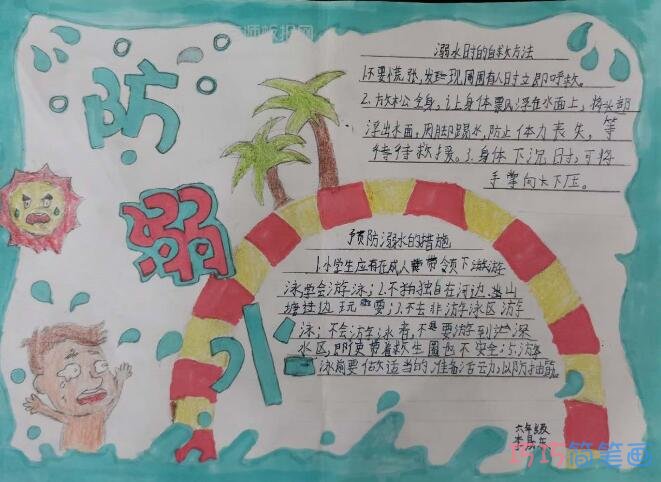 防
溺
溺水时的自救方法
1.不要慌张,发现周围有人时立即呼救。
2.放松全身,让身体飘浮在水面上,将头部
浮出水面,用脚踢水,防止体力丧失,等
待待救援。3.身体下沉日寸,可将
手掌向大下压。
预防溺水的措施
1.小学生应有在成人带领下游
泳学会游泳;2.不独自在河边、山
塘边玩耍;3.不去非游泳区游
泳;不会游泳者,不要游到深
水区,即使带着救生圈也不安全;5.游
泳前要做适当的准备活动,以防抽筋。
六年级
1515简笔画